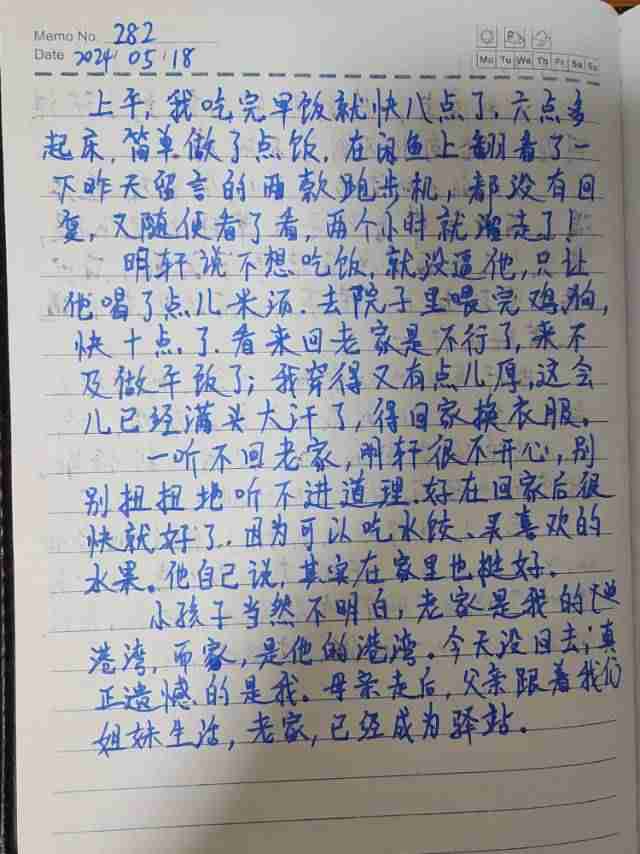 Memo No. 282
Date 2024 05 18
Mo Tu We Th Fr Sa Su
上午，我吃完早饭就快八点了。六点多
起床，简单做了点饭，在闲鱼上翻看了一
下昨天留言的两款跑步机，都没有回
复，又随便看了看，两个小时就溜走了！
明轩说不想吃饭，就没逼他，只让
他喝了点儿米汤。去院子里喂完鸡、狗，
快十点了。看来回老家是不行了，来不
及做午饭了；我穿得又有点儿厚，这会
儿已经满头大汗了，得回家换衣服。
一听不回老家，明轩很不开心，别
别扭扭地听不进道理。好在回家后很
快就好了，因为可以吃水饺、买喜欢的
水果。他自己说，其实在家里也挺好。
小孩子当然不明白，老家是我的
港湾，而家，是他的港湾。今天没回去，真
正遗憾的是我。母亲走后，父亲跟着我们
姐妹生活，老家，已经成为驿站。